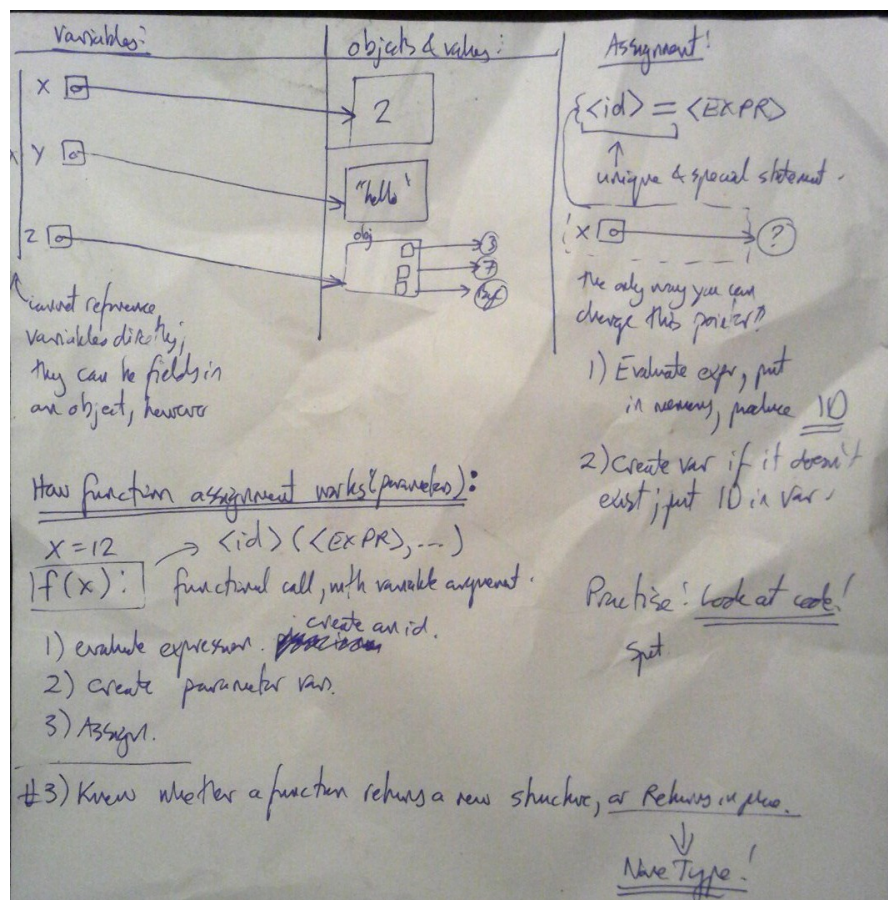 Variables:
X
Y
Z
cannot reference
variables directly;
they can be fields in
an object, however
objects & values:
2
"hello"
obj
3
7
Assignment!
{<id> = <EXPR>
unique & special statement.
X ?
the only way you can
change this pointer!!
1) Evaluate expr, put
in memory, produce ID
2) Create var if it doesn't
exist; put ID in var.
Practise! Look at code!
How function assignment works (parameter):
X = 12
<id>(<EXPR>, ...)
f(x):
functional call, with variable argument.
1) evaluate expression. ; create an id.
2) create parameter var.
3) Assign.
#3) Know whether a function returns a new structure, or Returns in place.
None Type!